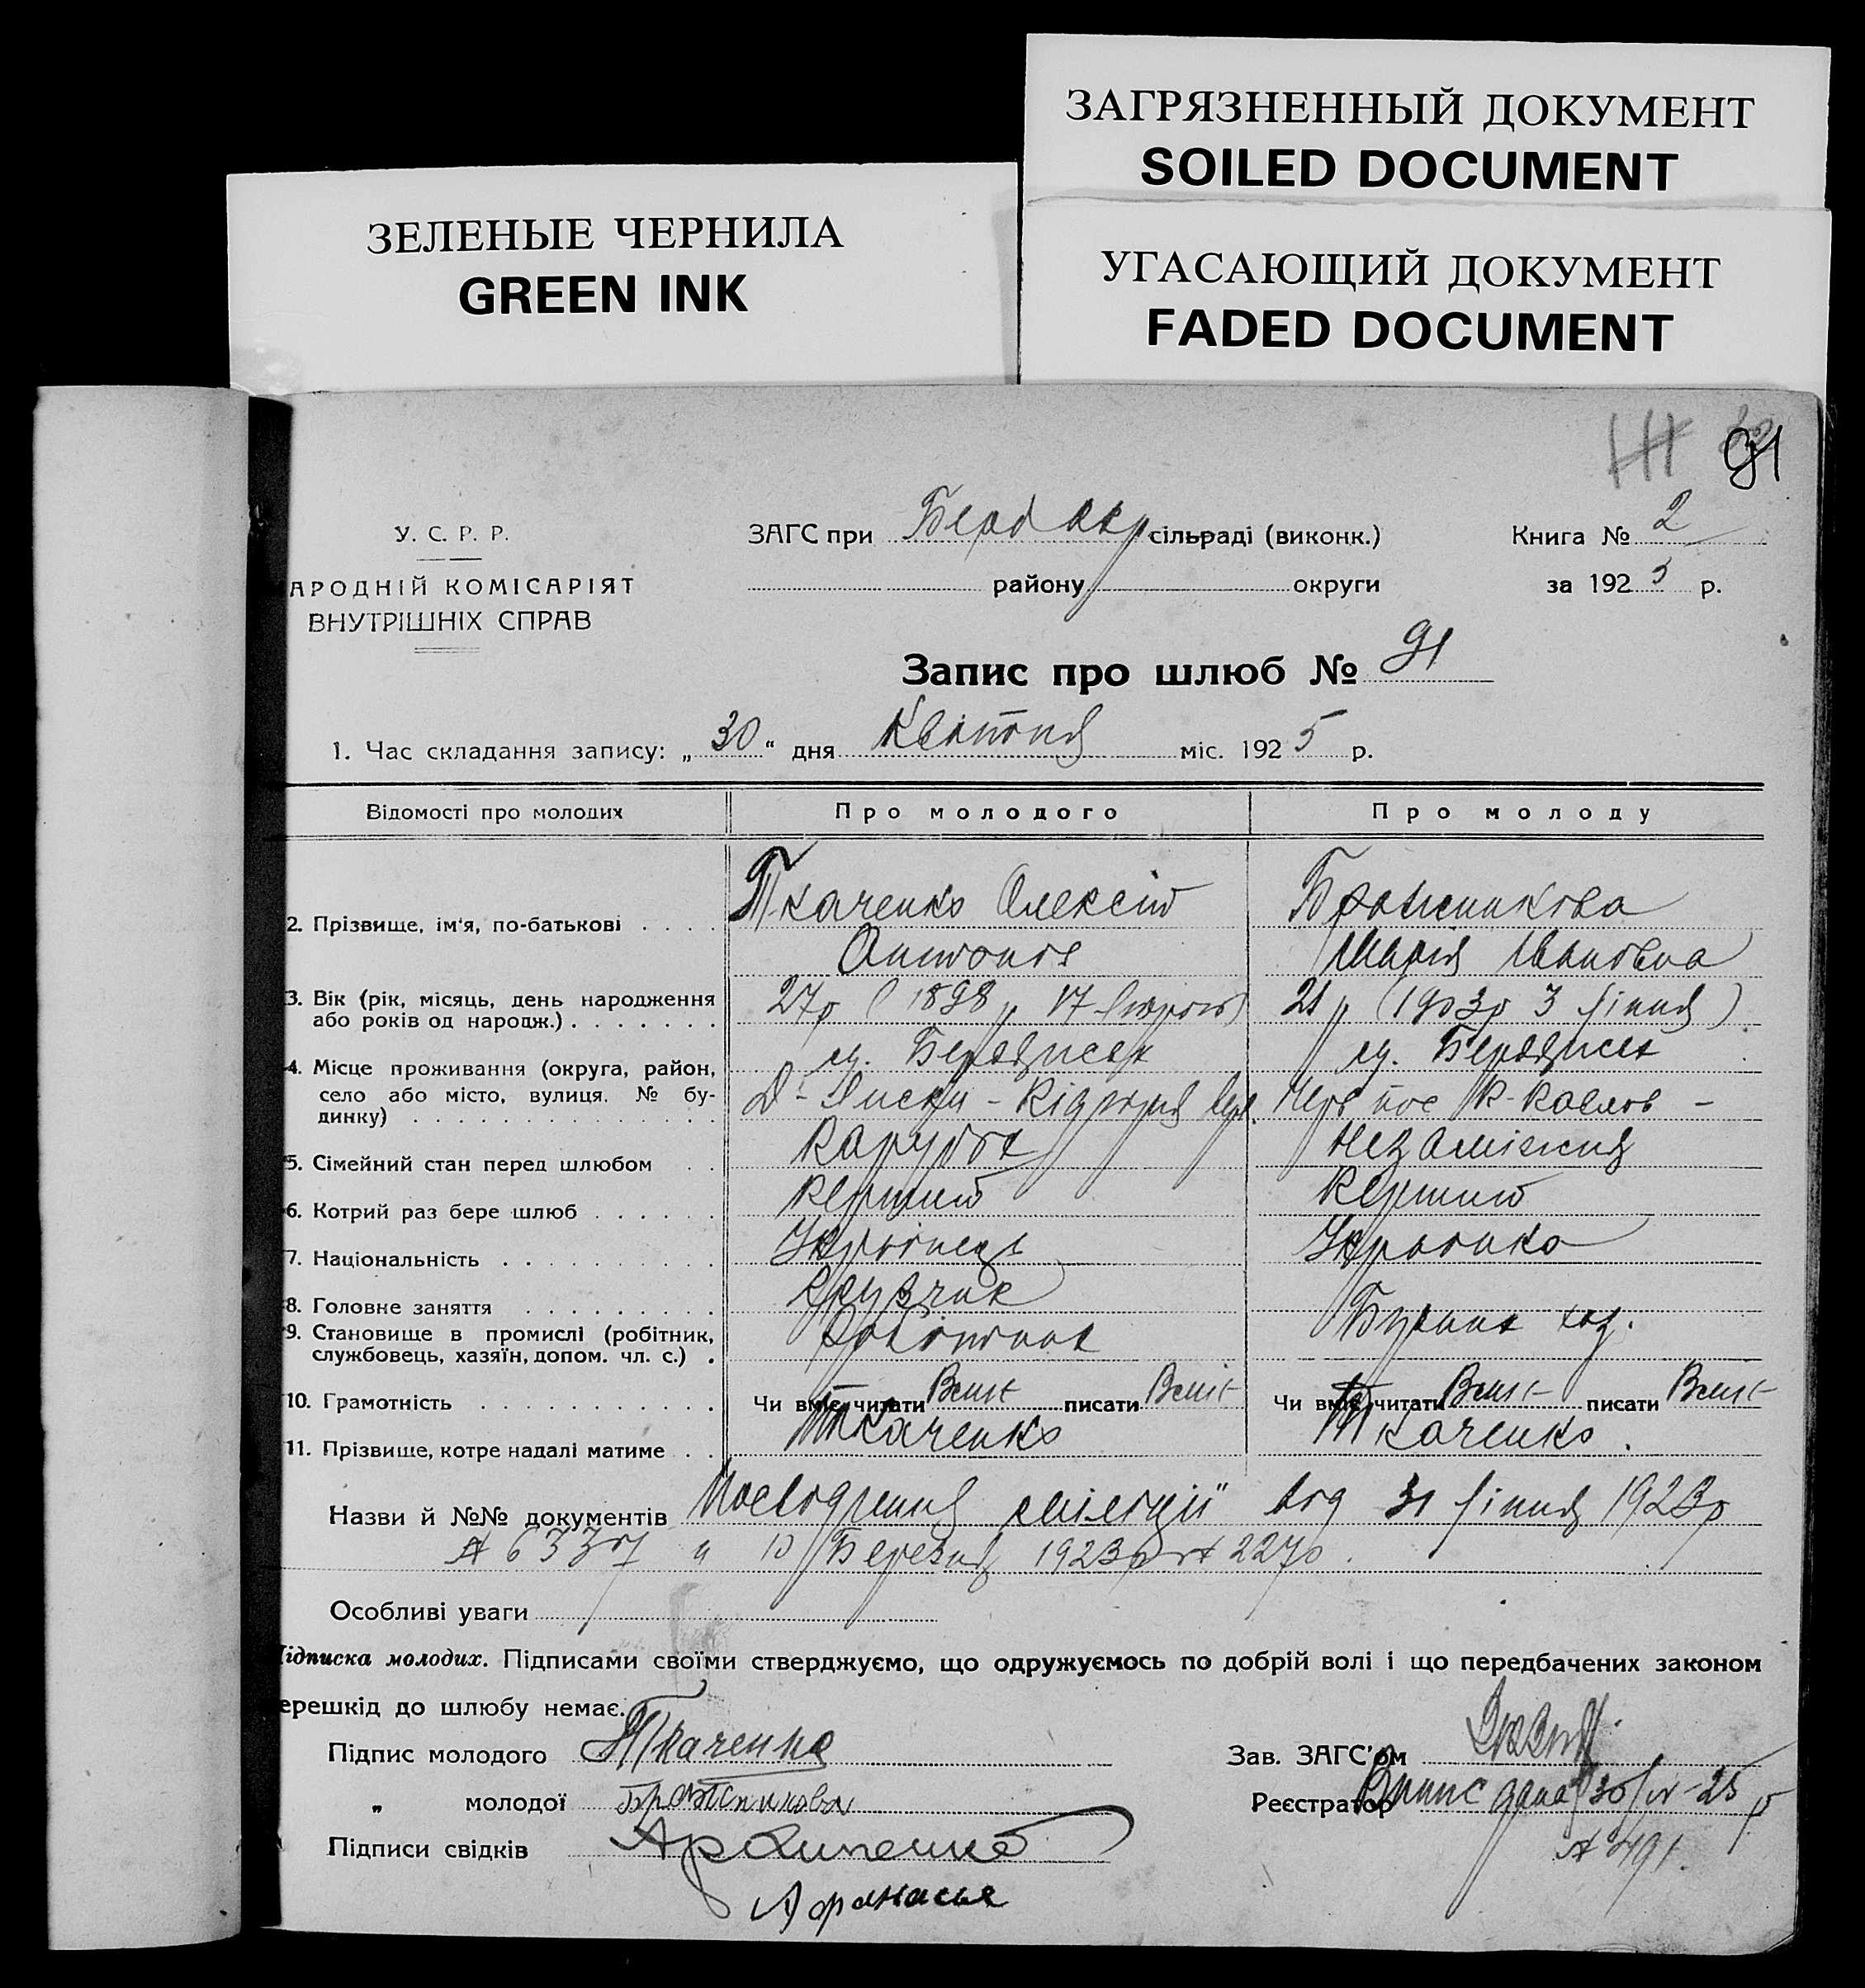 ЗАГРЯЗНЕННЫЙ ДОКУМЕНТ
SOILED DOCUMENT
ЗЕЛЕНЫЕ ЧЕРНИЛА
GREEN INK
УГАСАЮЩИЙ ДОКУМЕНТ
FADED DOCUMENT
91
У. С. Р. Р.
АРОДНІЙ КОМІСАРІЯТ
ВНУТРІШНІХ СПРАВ
ЗАГС при Берд окр. сільраді (виконк.)
району округи
Книга № 2
за 1925 р.
Запис про шлюб № 91
1. Час складання запису: „30“ дня Квітня міс. 1925 р.
Відомості про молодих Про молодого Про молоду
2. Прізвище, ім'я, по-батькові Ткаченко Олексій Бражникова
Антонов Марія Ивановна
3. Вік (рік, місяць, день народження 27р (1898р 17 21р (1903р 3 ліпня)
або років од народж.)
м. Бердянськ м. Бердянськ
4. Місце проживання (округа, район,
село або місто, вулиця. № бу-
динку)
5. Сімейний стан перед шлюбом Парубок Незаміжня
6. Котрий раз бере шлюб Перший Перший
7. Національність Українець Українка
8. Головне заняття Грузчик
9. Становище в промислі (робітник, Робітник
службовець, хазяїн, допом. чл. с.)
10. Грамотність Чи вміє читати Вміє писати Вміє Чи вміє читати Вміє писати Вміє
11. Прізвище, котре надалі матиме Ткаченко Ткаченко.
Назви й №№ документів Посвідчення міліції від 31 ліпня 1923р
№ 6337 и 10 Березня 1923р № 2270.
Особливі уваги
ідписка молодих. Підписами своїми стверджуємо, що одружуємось по добрій волі і що передбачених законом
ерешкід до шлюбу немає.
Підпис молодого Ткаченко
Зав. ЗАГС'ом
„ молодої Бражникова
Реєстратор Випис дана 30/IV-25 р
Підписи свідків
№ 491.